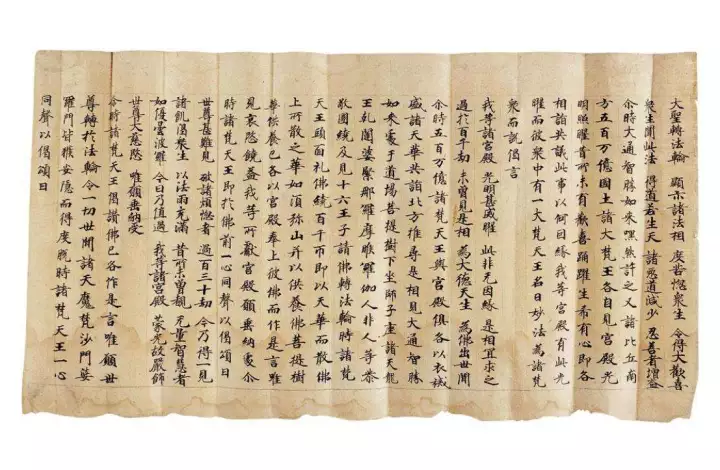 大聖轉法輪 顯示諸法相 度苦惱衆生 令得大歡喜
衆生聞此法 得道若生天 諸惡道減少 忍善者增益
尒時大通智勝如來嘿然許之又諸比丘南
方五百万億國土諸大梵王各自見宮殿光
明照曜昔所未有歡喜踊躍生希有心即各
相詣共議此事以何因緣我等宮殿有此光
曜而彼衆中有一大梵天王名曰妙法為諸梵
衆而說偈言
我等諸宮殿 光明甚威曜 此非无因緣 是相宜求之
過於百千劫 未曾見是相 為大德天生 為佛出世間
尒時五百万億諸梵天王與宮殿俱各以衣祴
盛諸天華共詣北方推尋是相見大通智勝
如來處于道場菩提樹下坐師子座諸天龍
王乾闥婆緊那羅摩睺羅伽人非人等恭
敬圍繞及見十六王子請佛轉法輪時諸梵
天王頭面礼佛繞百千帀即以天華而散佛
上所散之華如須弥山并以供養佛菩提樹
華供養已各以宮殿奉上彼佛而作是言唯
見哀愍饒益我等所獻宮殿願垂納處尒
時諸梵天王即於佛前一心同聲以偈頌曰
世尊甚難見 破諸煩惱者 過百三十劫 今乃得一見
諸飢渴衆生 以法雨充滿 昔所未曾覩 无量智慧者
如優曇波羅 今日乃值遇 我等諸宮殿 蒙光故嚴飾
世尊大慈愍 唯願垂納受
尒時諸梵天王偈讚佛已各作是言唯願世
尊轉於法輪令一切世間諸天魔梵沙門婆
羅門皆獲安隱而得度脫時諸梵天王一心
同聲以偈頌曰